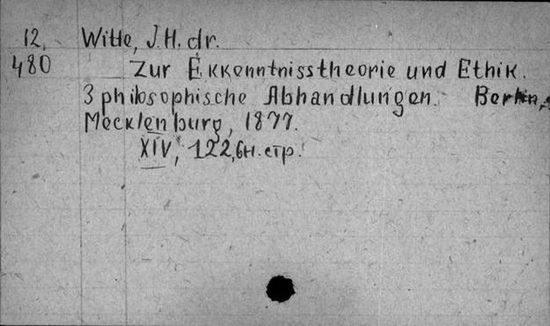 12, Witte, J. H. dr.
480 Zur Ekkenntnisstheorie und Ethik.
3 philosophische Abhandlungen. Berlin,
Mecklenburg, 1877.
XIV, 122, 6н. стр.